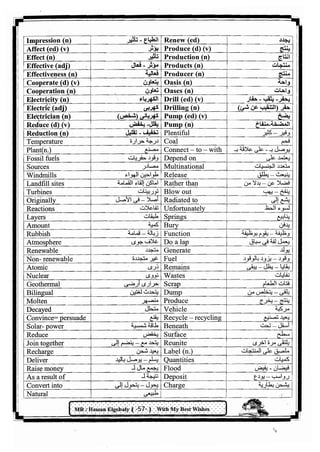 Impression (n) انطباع - تأثير Renew (ed) يجدد
Affect (ed) (v) يؤثر Produce (d) (v) ينتج
Effect (n) تأثير Production (n) انتاج
Effective (adj) مؤثر - فعال Products (n) منتجات
Effectiveness (n) فعالية Producer (n) منتج
Cooperate (d) (v) يتعاون Oasis (n) واحة
Cooperation (n) تعاون Oases (n) واحات
Electricity (n) الكهرباء Drill (ed) (v) يحفر
Electric (adj) كهربى Drilling (n) حفر (التنقيب عن شئ)
Electrician (n) كهربائى (شخص) Pump (ed) (v) يضخ
Reduce (d) (v) يقلل- يخفض Pump (n)
Reduction (n) تخفيف - تقليل Plentiful وفير - كثير
Temperature درجة حرارة Coal فحم
Plant(n.) مصنع Connect – to – with يوصل بـ - على علاقة بـ
Fossil fuels وقود حفريات Depend on يعتمد على
Sources مصادر Multinational متعدد الجنسيات
Windmills طواحين الهواء Release ينبعث - يطلق
Landfill sites أماكن إلقاء القمامة Rather than فضلا عن - بدلا من
Turbines توربينات Blow out ينفخ - يهب
Originally أصلا - فى الأصل Radiated to يشع إلى
Reactions تفاعلات Unfortunately لسوء الحظ
Layers طبقات Springs ينابيع
Amount كمية Bury يدفن
Rubbish زبالة - قمامة Function وظيفة - يقوم بوظيفة
Atmosphere غلاف جوى Do a lap يعمل لفة فى سباق
Renewable متجددة Generate يولد
Non- renewable غير متجددة Fuel وقود - يزود بالوقود
Atomic ذرى Remains بقايا - يظل - يبقى
Nuclear نووى Wastes نفايات
Geothermal حرارى أرضى Scrap فتات الطعام
Bilingual يتحدث لغتين Dump يلقى - يتخلص من
Molten منصهر Produce ينتج - يخرج
Decayed متحلل Vehicle مركبة
Convince= persuade يقنع Recycle – recycling يعيد تصنيع
Solar- power طاقة شمسية Beneath أسفل - تحت
Reduce يخفض Surface سطح
Join together يتحد مع - ينضم إلى Reunite يلتقى مرة اخرى
Recharge يعيد شحن Label (n.) ملصق على المنتجات
Deliver يسلم - يوصل باليد Quantities كميات
Raise money يجمع مال لـ Flood فيضان - يفيض
As a result of نتيجة لـ Deposit رواسب - يودع
Convert into يحول - يتحول إلى Charge يشحن بطارية
Natural طبيعى
MR / Hassan Elgebaly ( -57- ) With My Best Wishes